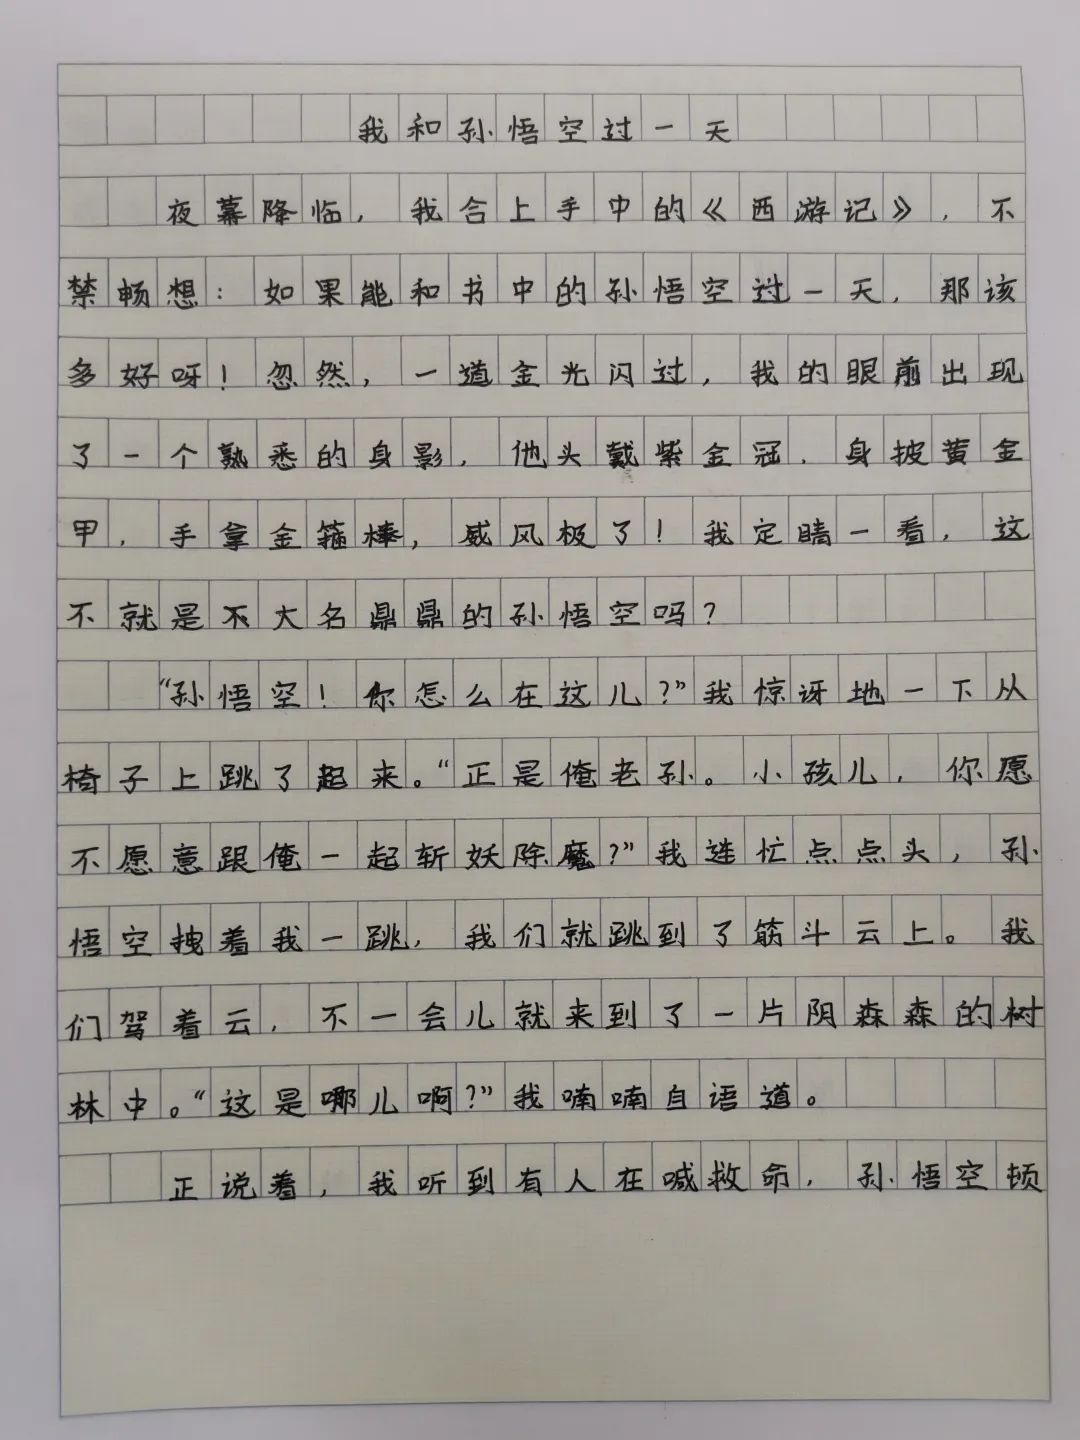 我和孙悟空过一天
夜幕降临，我合上手中的《西游记》，不
禁畅想：如果能和书中的孙悟空过一天，那该
多好呀！忽然，一道金光闪过，我的眼前出现
了一个熟悉的身影，他头戴紫金冠，身披黄金
甲，手拿金箍棒，威风极了！我定睛一看，这
不就是不大名鼎鼎的孙悟空吗？
“孙悟空！你怎么在这儿？”我惊讶地一下从
椅子上跳了起来。“正是俺老孙。小孩儿，你愿
不愿意跟俺一起斩妖除魔？”我连忙点点头，孙
悟空拽着我一跳，我们就跳到了筋斗云上。我
们驾着云，不一会儿就来到了一片阴森森的树
林中。“这是哪儿啊？”我喃喃自语道。
正说着，我听到有人在喊救命，孙悟空顿